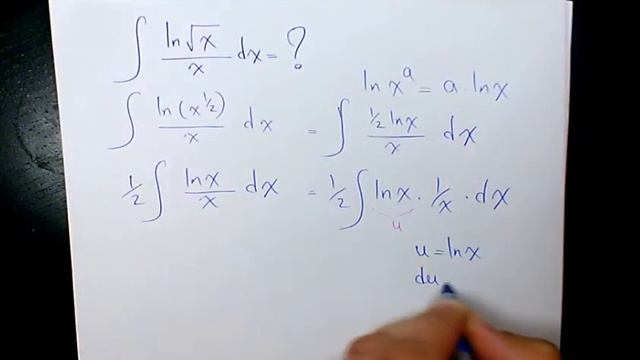 ∫ ln√x / x dx = ?
ln x^a = a · ln x
∫ ln(x^½) / x dx = ∫ ½ ln x / x dx
½ ∫ ln x / x dx = ½ ∫ ln x · 1/x · dx
u
u = ln x
du